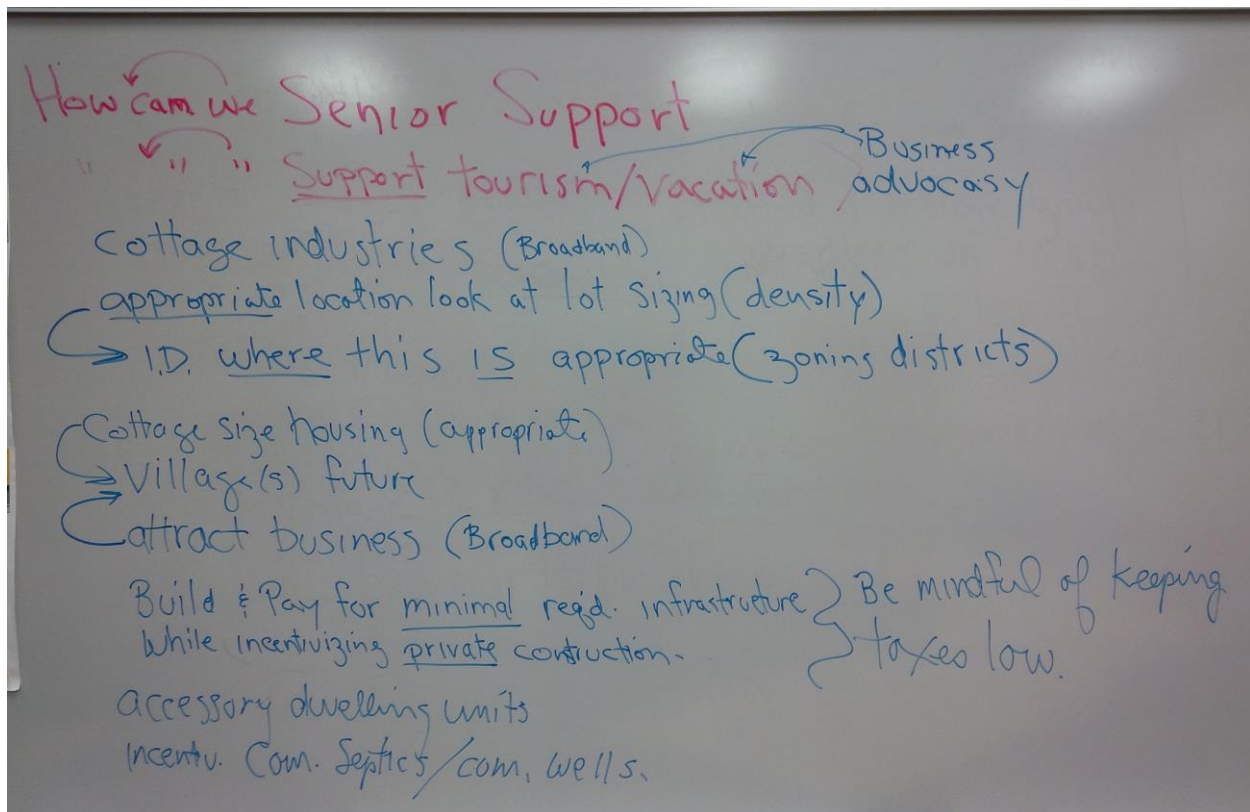 How can we Senior Support
" " " Support tourism/vacation
Business
advocasy
cottage industries (Broadband)
appropriate location look at lot sizing (density)
I.D. where this is appropriate (zoning districts)
Cottage size housing (appropriate)
Village(s) future
attract business (Broadband)
Build & Pay for minimal req'd. infrastructure
While incentivizing private contruction.
Be mindful of keeping
taxes low.
accessory dwelling units
incentv. Com. Septics/com. wells.